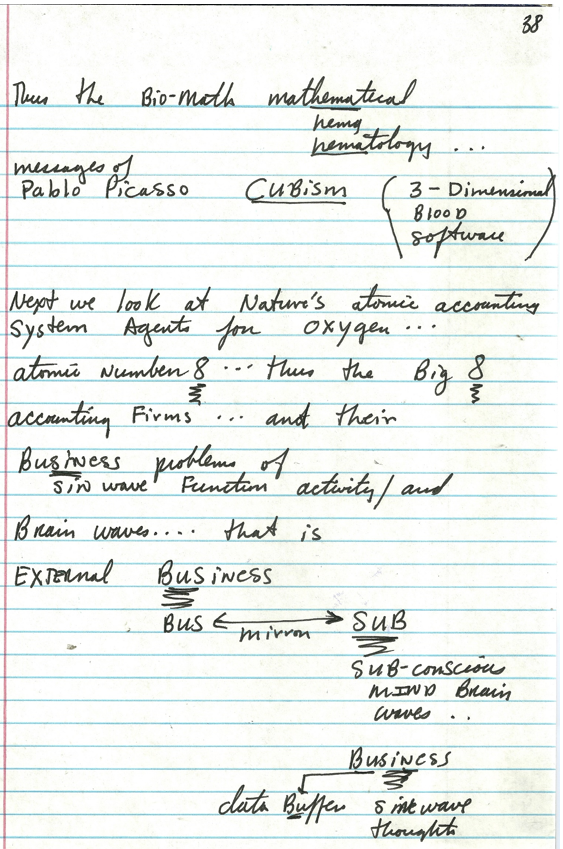 38
Thus the Bio-Math mathematical
hema
hematology ...
messages of
Pablo Picasso CUBISM ( 3-Dimensional
Blood
software )
Next we look at Nature's atomic accounting
System Agents for oxygen ...
atomic number 8 ... thus the Big 8
accounting Firms ... and their
Business problems of
sin wave Function activity/and
Brain waves.... that is
EXTERNAL BUSINESS
BUS mirror SUB
SUB-conscious
MIND Brain
waves ..
Business
data Buffer sine wave
thoughts